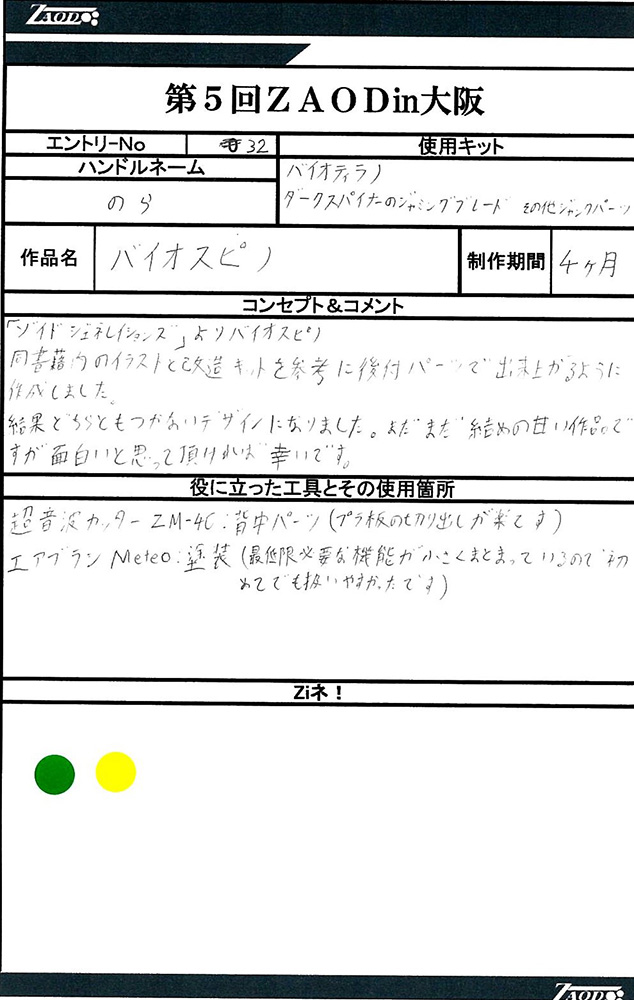 ZAOD
第5回ZAODin大阪
エントリーNo 32
使用キット
ハンドルネーム
のら
バイオティラノ
ダークスパイナーのジャミングブレード その他ジャンクパーツ
作品名 バイオスピノ
制作期間 4ヶ月
コンセプト&コメント
「ゾイドジェネレイションズ」よりバイオスピノ
同書籍内のイラストと改造キットを参考に後付パーツで出来上がるように
作成しました。
結果どちらともつかないデザインになりました。まだまだ詰めの甘い作品で
すが面白いと思って頂ければ幸いです。
役に立った工具とその使用箇所
超音波カッターZM-40:背中パーツ(プラ板の切り出しが楽です)
エアブラシMeteo:塗装(最低限必要な機能が小さくまとまっているので初
めてでも扱いやすかったです)
Ziネ!
ZAOD